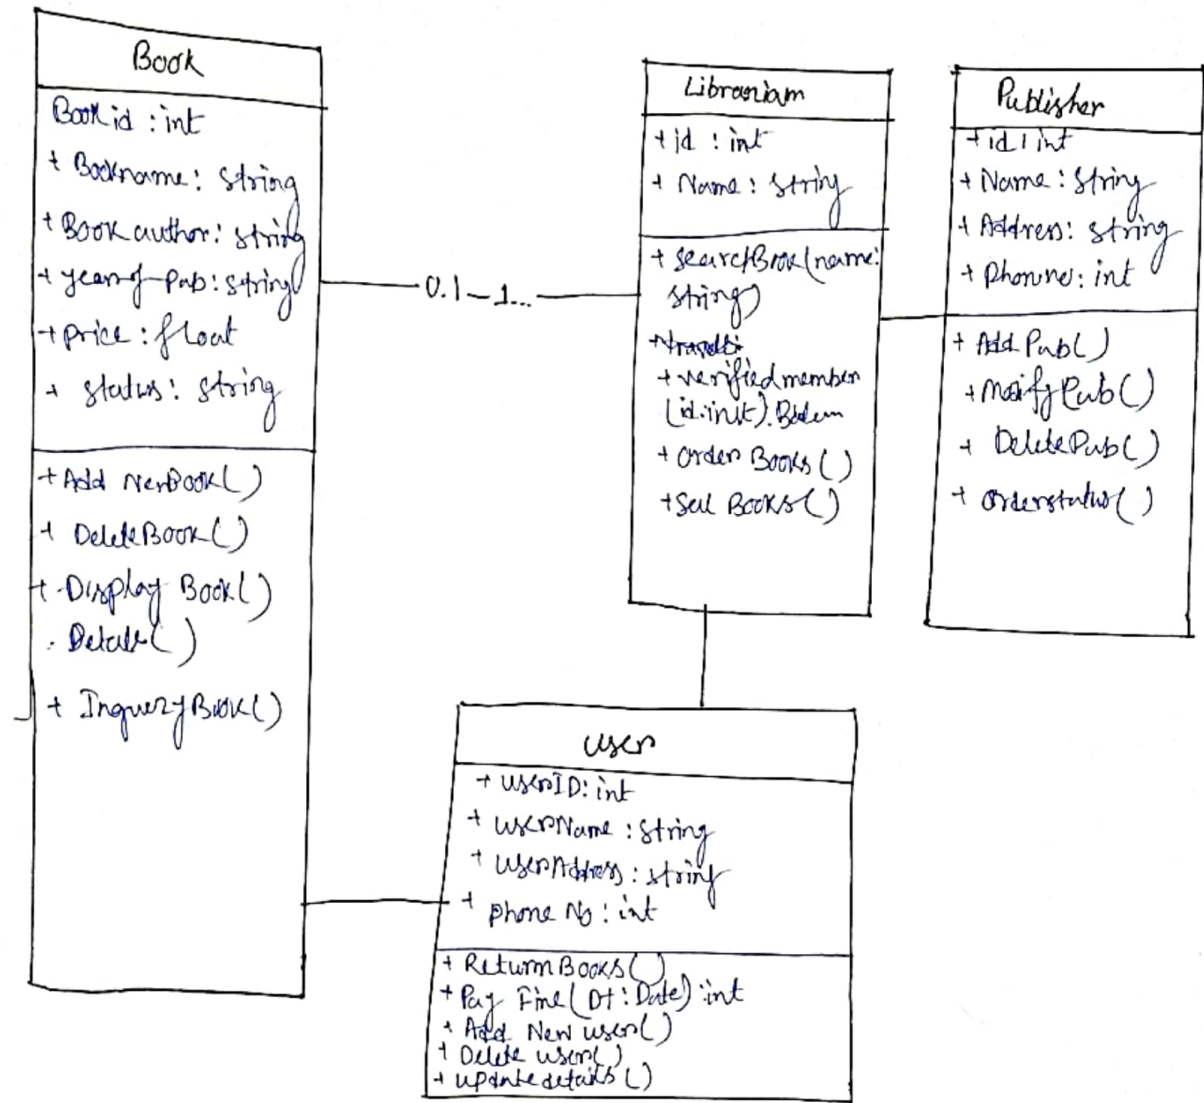 Book
Book id : int
+ Bookname : string
+ Book author : string
+ year of Pub : string
+ price : float
+ status : string
+ Add NewBook()
+ DeleteBook()
+ Display Book()
. Details()
+ InqueryBook()
0.1 – 1...
Librariam
+ id : int
+ Name : string
+ searchBook(name:
string)
+ verifiedmember
(id:init).
+ Order Books()
+ Sell Books()
Publisher
+ id : int
+ Name : String
+ Address : string
+ Phonne : int
+ Add Pub()
+ Modify Pub()
+ DeletePub()
+ orderstatus()
user
+ userID: int
+ userName : String
+ userAddress : string
+ phone No : int
+ ReturnBooks()
+ Pay Fine(Dt : Date) : int
+ Add New user()
+ Delete user()
+ update details()